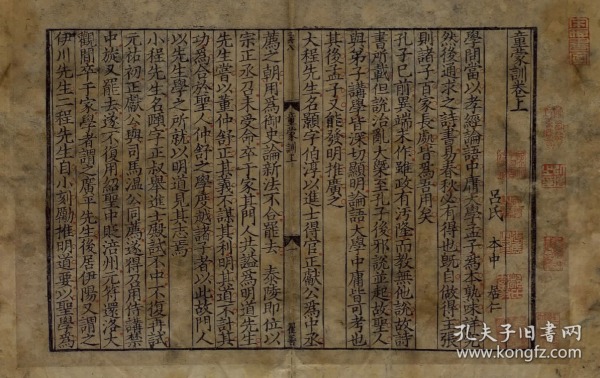 童蒙訓卷上
呂氏 本中 居仁
學問當以孝經論語中庸大學孟子為本熟味詳究
然後通求之詩書易春秋必有得也既自做得主張
則諸子百家長處皆為吾用矣
孔子已前異端未作雖政有汚隆而教無他說故詩
書所載但說治亂大槩至孔子後邪說並起故聖人
與弟子講學皆深切顯明論語大學中庸皆可考也
其後孟子又能發明推廣之
大程先生名顥字伯淳以進士得官正獻公為中丞
薦之朝用為御史論新法不合罷去 泰陵即位以
宗正丞召未受命卒于家其門人共諡為明道先生
先生嘗以董仲舒正其義不謀其利明其道不計其
功為合於聖人仲舒之學度越諸子者以此故門人
以先生學之所就以明道見其志焉
小程先生名頤字正叔舉進士殿試不中不復再試
元祐初正獻公與司馬溫公同薦遂得召用侍講禁
中旋又罷去遂不復用紹聖中貶涪州元符還洛大
觀間卒于家學者謂之廣平先生後居伊陽又謂之
伊川先生二程先生自小刻勵推明道要以聖學為
孔夫子旧书网
www.kongfz.com